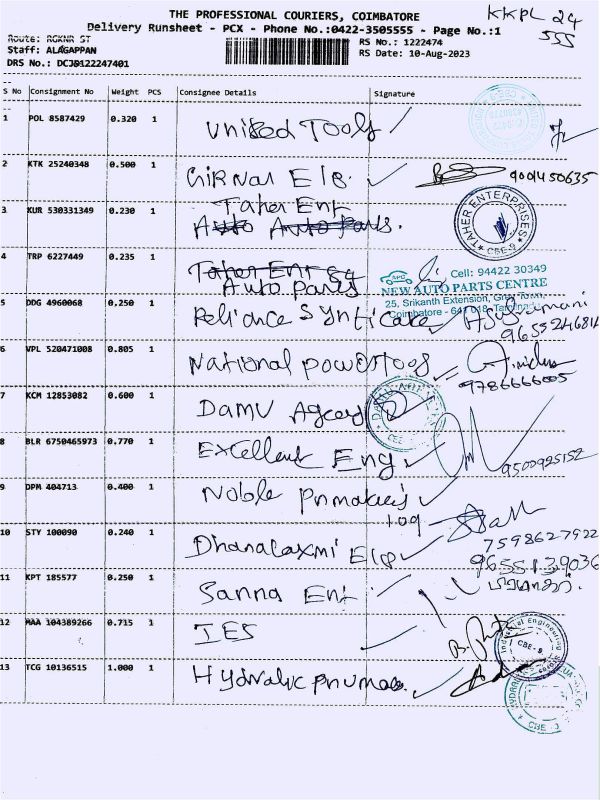 THE PROFESSIONAL COURIERS, COIMBATORE
Delivery Runsheet - PCX - Phone No.:0422-3505555 - Page No.:1
KKPL 24
555
Route: RGKNR ST
Staff: ALAGAPPAN
DRS No.: DCJB122247401
RS No.: 1222474
RS Date: 10-Aug-2023
S No Consignment No Weight PCS Consignee Details Signature
1 POL 8587429 0.320 1 United Tools
2 KTK 25240348 0.500 1 Girnar Ele. 9001450635
Taher Ent
3 KUR 530331349 0.230 1 Auto Auto Parts.
TAHER ENTERPRISES
CBE-9
4 TRP 6227449 0.235 1 Taher Ent
Auto parts
Cell: 94422 30349
NEW AUTO PARTS CENTRE
25, Srikanth Extension, Town,
Coimbatore - 641 018, Tamilnadu
5 DDG 4960068 0.250 1 Reliance Synticate
9655246814
6 VPL 520471008 0.805 1 National powertools
9786666005
7 KCM 12853082 0.600 1 Damu Agcey
CBE
8 BLR 6750465973 0.770 1 Excellent Eng
9500925152
9 DPM 404713 0.400 1 Noble pnmatices
109
10 STY 100090 0.240 1 Dhanalaxmi Ele
7598627922
9655139036
11 KPT 185577 0.250 1 Sanna Ent
12 MAA 104389266 0.715 1 IES
Industrial Engineering
CBE-9
13 TCG 10136515 1.000 1 Hydralic pnumac.
CBE